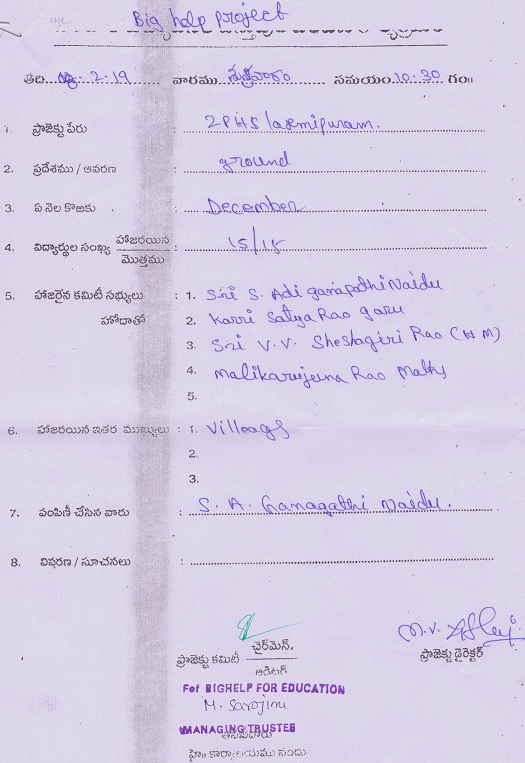 Big help project
తేది. 2-19 వారము శుక్రవారం సమయం 10:30 గం॥
1. ప్రాజెక్టు పేరు : ZPHS laxmipuram.
2. ప్రదేశము / ఆవరణ : ground
3. ఏ నెల కొఱకు : December
4. విద్యార్థుల సంఖ్య హాజరయిన : 15/15
మొత్తము
5. హాజరైన కమిటీ సభ్యులు : 1. Sri S. Adi ganapathi Naidu
హోదాతో 2. Karri Satya Rao garu
3. Sri V.V. Sheshagiri Rao (HM)
4. Malikarujuna Rao Maths
5.
6. హాజరయిన ఇతర ముఖ్యులు : 1. Villeags
2.
3.
7. పంపిణీ చేసిన వారు : S. A. Ganagathi Naidu.
8. వివరణ / సూచనలు :
M.V.
ప్రాజెక్టు కమిటీ ఛైర్మెన్. ప్రాజెక్టు డైరెక్టర్
ఆడిటర్
For BIGHELP FOR EDUCATION
M. Sarojini
MANAGING TRUSTEE
హె॥ కార్యాలయము నందు